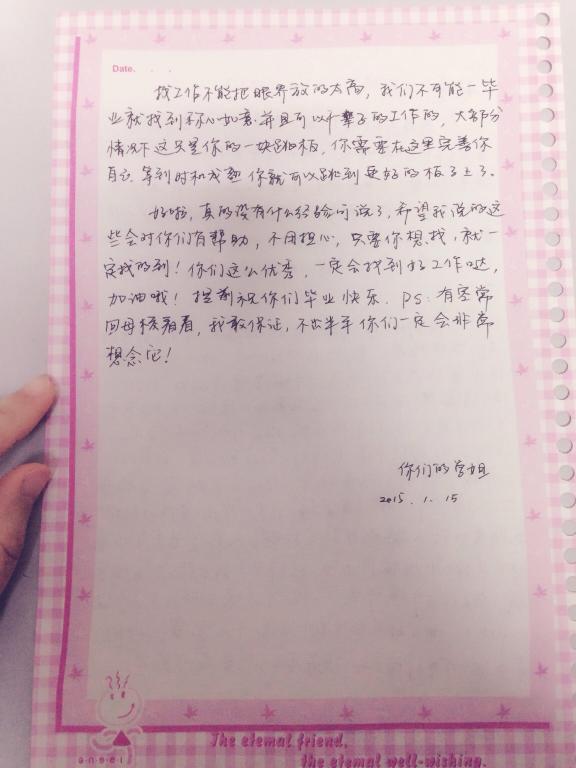 Date.
找工作不能把眼界放的太高，我们不可能一毕
业就找到称心如意并且可以干一辈子的工作的，大部分
情况下这只是你的一块跳板，你需要在这里完善你
自己，等到时机成熟你就可以跳到更好的板子上了。
好啦，真的没有什么经验可说了，希望我说的这
些会对你们有帮助，不用担心，只要你想找，就一
定找的到！你们这么优秀，一定会找到好工作哒，
加油哦！提前祝你们毕业快乐．PS：有空常
回母校看看，我敢保证，不出半年你们一定会非常
想念它！
你们的学姐
2015．1．15
angel
The eternal friend,
the eternal well-wishing.